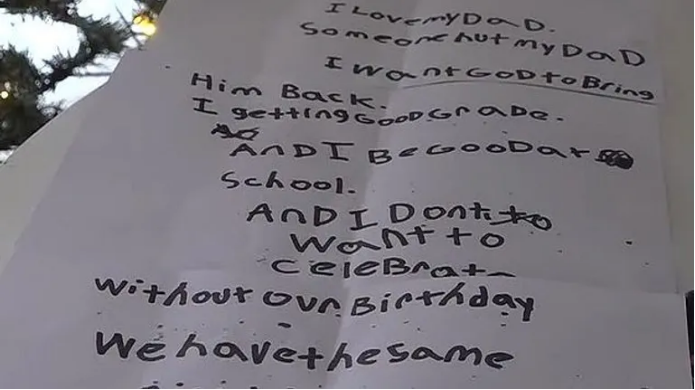 I LovemyDaD.
Someone hut my DaD
I want GOD to Bring
Him Back.
I getting GOOD GraDe.
AnD I Be GooD at
School.
AnD I Dont
want to
CeleBrat
without our Birthday
We have the same